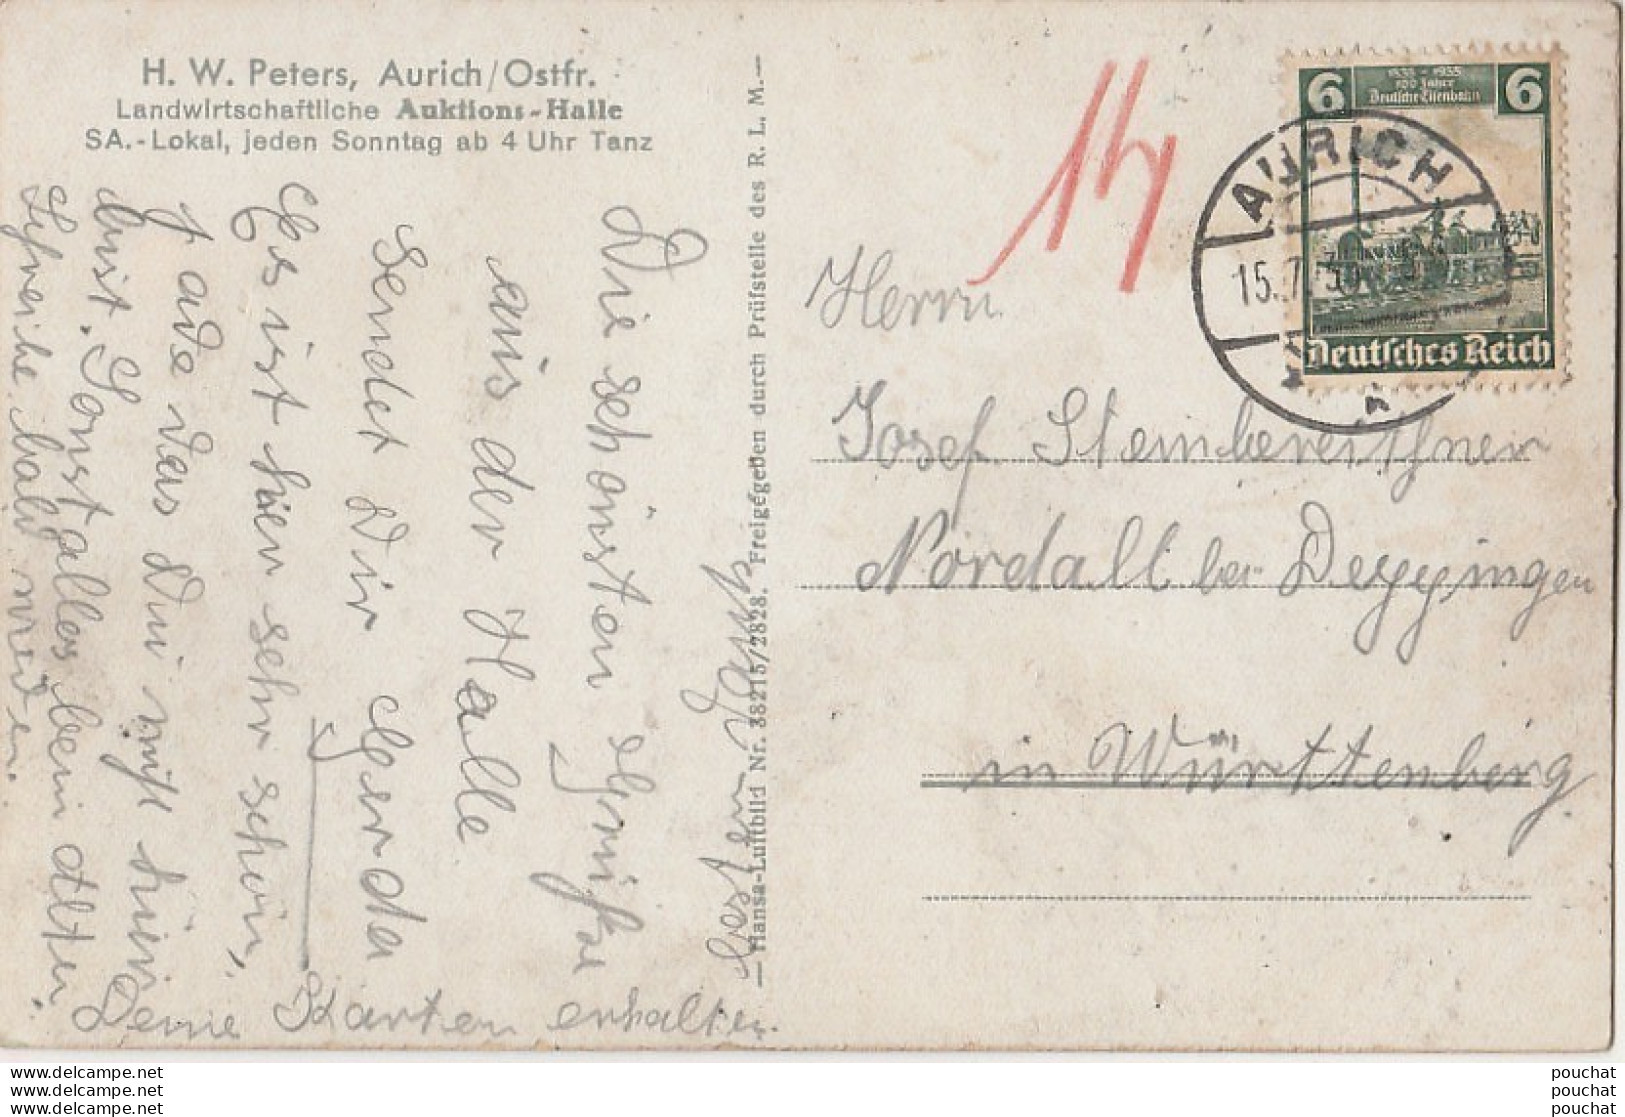 H. W. Peters, Aurich/Ostfr.
Landwirtschaftliche Auktions-Halle
SA.-Lokal, jeden Sonntag ab 4 Uhr Tanz
Die schönsten Grüße
aus der Halle
sendet Dir Gerda
Es ist hier sehr schön,
schade das Du nicht hier
bist. Sonst alles beim alten.
Schreibe bald wieder.
Deine Karten erhalten.
besten Dank
— Hansa-Luftbild Nr. 38215/2828. Freigegeben durch Prüfstelle des R. L. M.—
14
6 1835-1935 6
100 Jahre
Deutsche Eisenbahn
Deutsches Reich
AURICH
15.7.3
Herrn
Josef Steinbereithner
Nordall bei Deggingen
in Württemberg
www.delcampe.net
www.delcampe.net
www.delcampe.net
pouchat
pouchat
pouchat